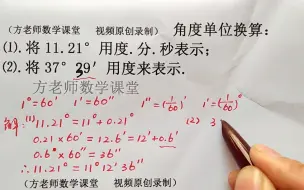 (方老师数学课堂 视频原创录制) 角度单位换算:
(1).将 11.21° 用度.分.秒表示;
(2).将 37°39′用度来表示.
方老师数学课堂
1°=60′ 1′=60″ 1″=(1/60)′ 1′=(1/60)°
解:(1) 11.21°=11°+0.21° (2) 3
0.21×60=12.6′=12′+0.6′
0.6×60=36″
∴11.21°=11°12′36″
(方老师数学课堂 视频原创录制)